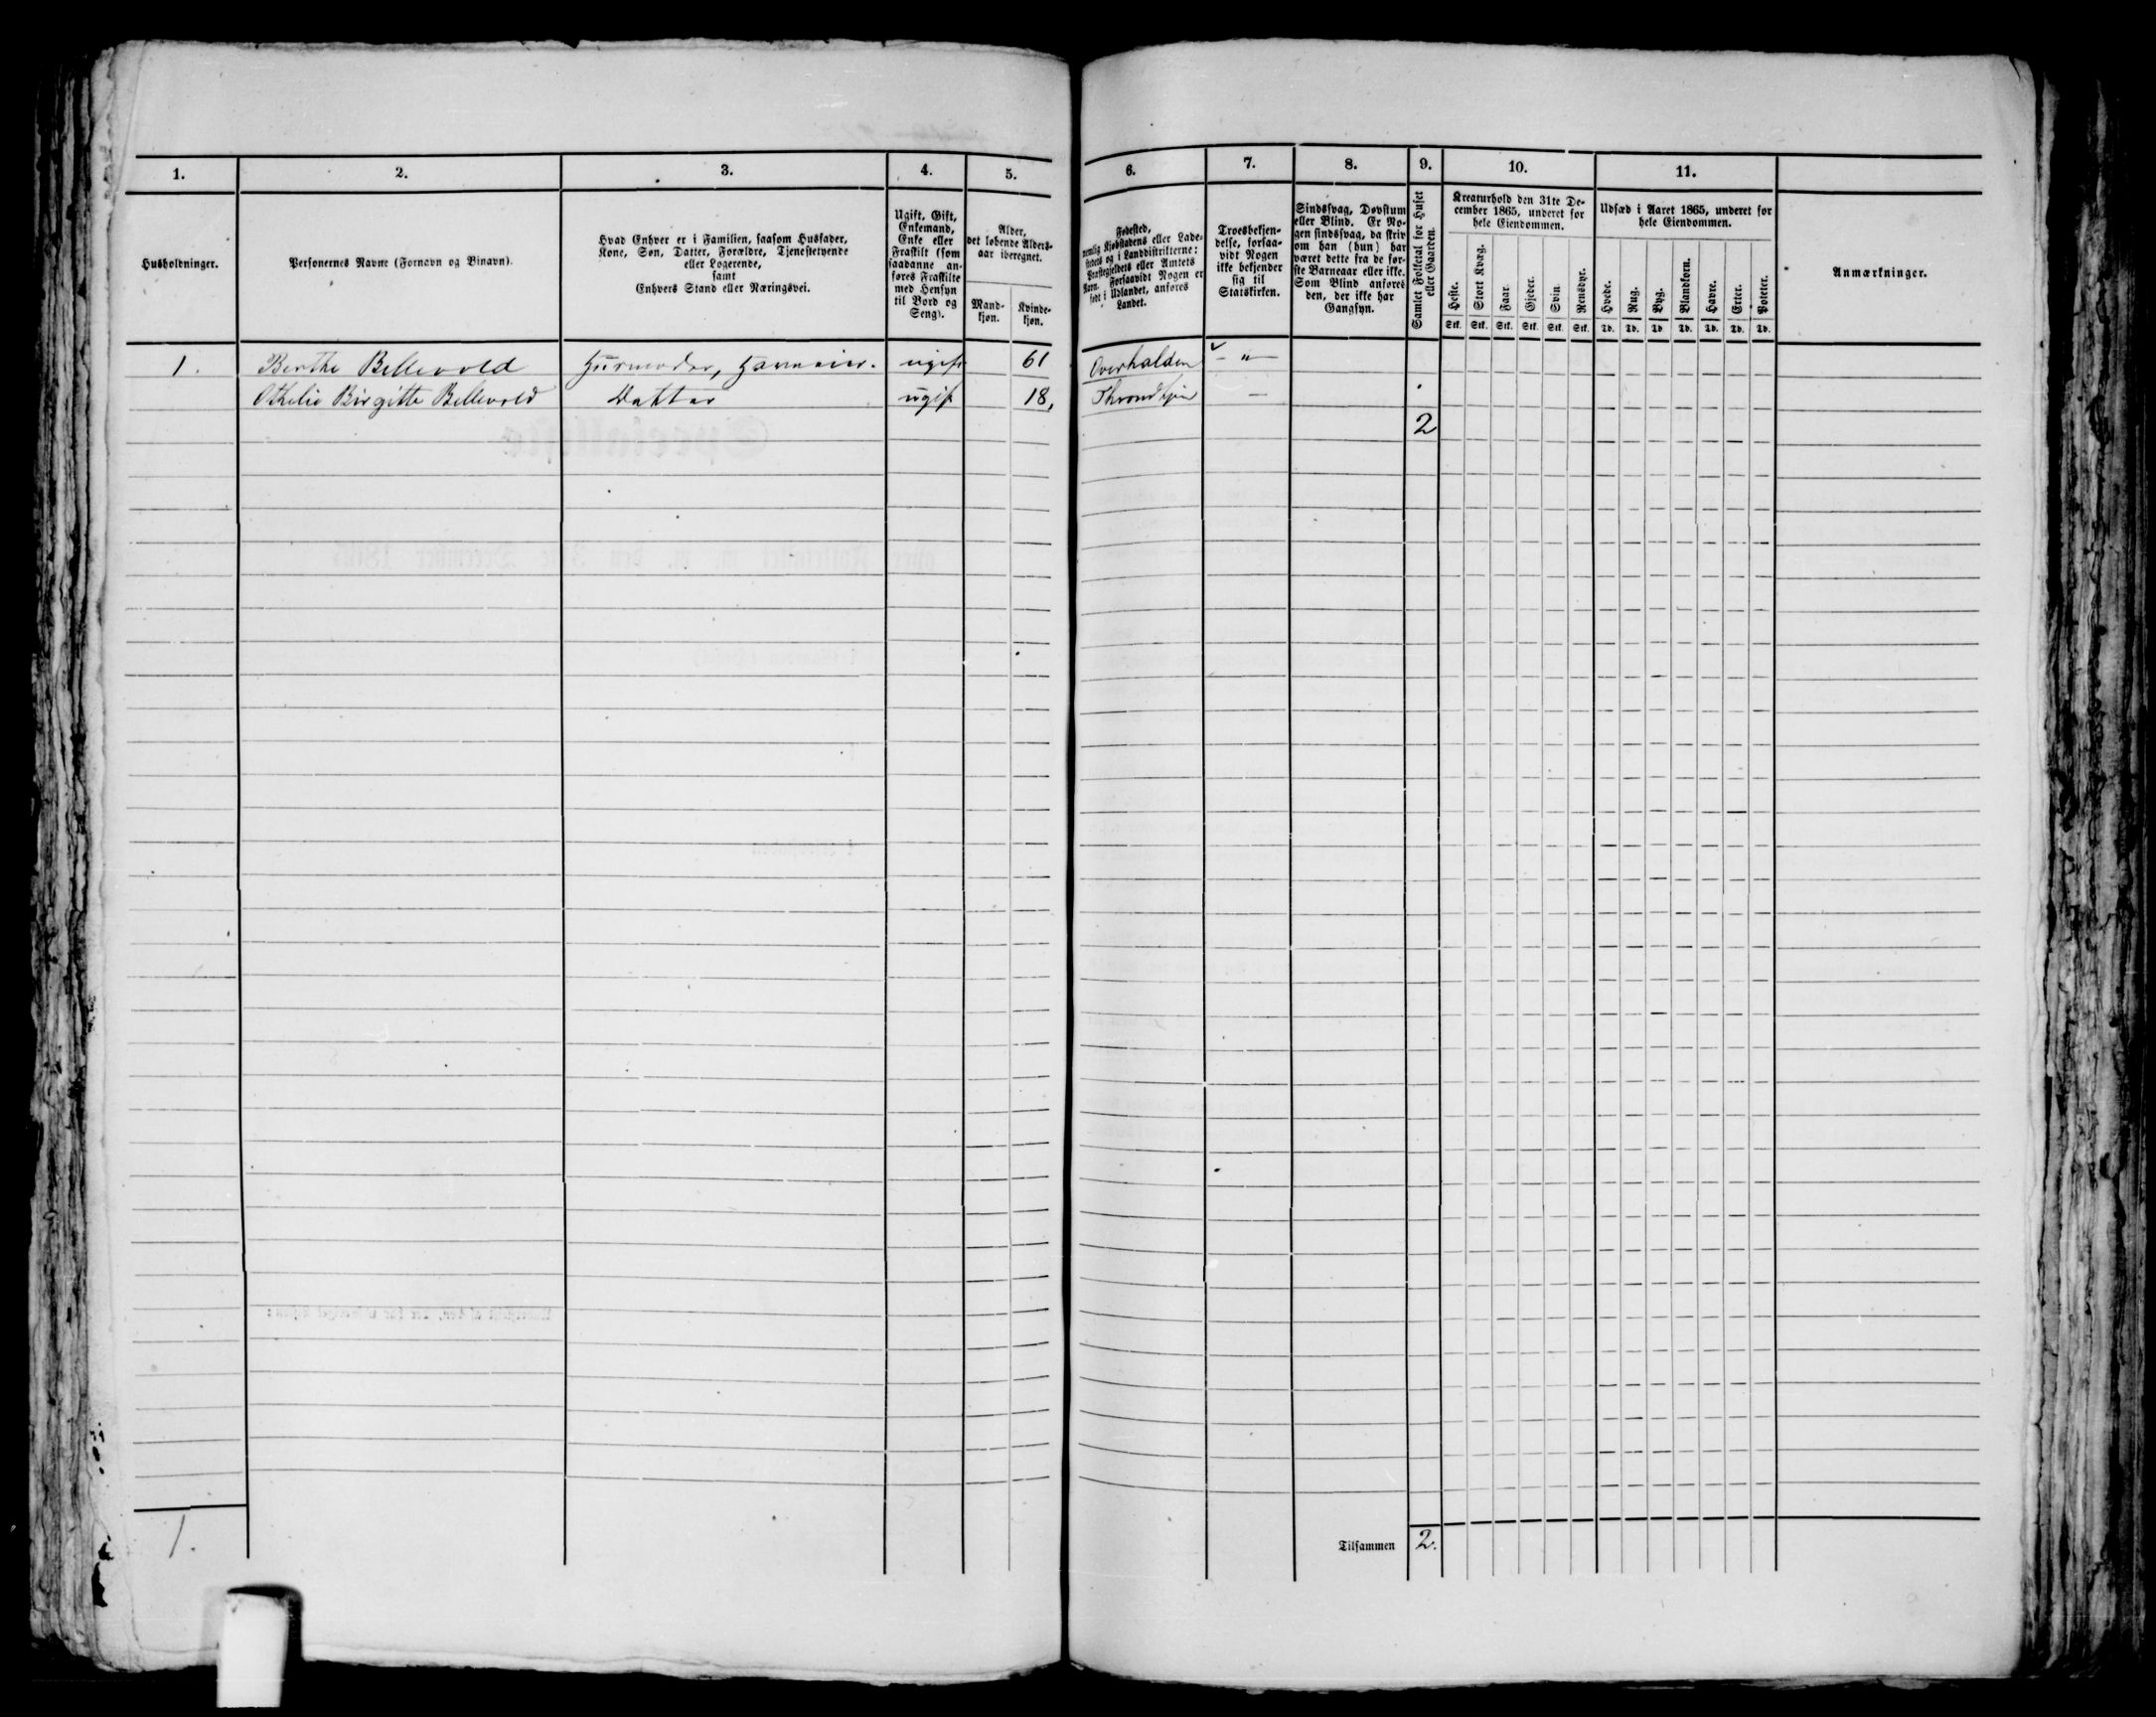 1. 2. 3. 4. 5. 6. 7. 8. 9. 10. 11.
Husholdninger.
Personernes Navne (Fornavn og Binavn).
Hvad Enhver er i Familien, saasom Husfader,
Kone, Søn, Datter, Forældre, Tjenestetyende
eller Logerende,
samt
Enhvers Stand eller Næringsvei.
Ugift, Gift,
Enkemand,
Enke eller
Fraskilt (som
saadanne an-
føres Fraskilte
med Hensyn
til Bord og
Seng).
Alder,
det løbende Alders-
aar iberegnet.
Mand-
kjøn.
Kvinde-
kjøn.
Fødested,
nemlig Kjøbstadens eller Lade-
stedets og i Landdistrikterne:
Præstegjeldets eller Amtets
Navn. Forsaavidt Nogen er
født i Udlandet, anføres
Landet.
Troesbekjen-
delse, forsaa-
vidt Nogen
ikke bekjender
sig til
Statskirken.
Sindssvag, Døvstum
eller Blind. Er No-
gen sindssvag, da skriv
om han (hun) har
været dette fra de før-
ste Barneaar eller ikke.
Som Blind anføres
den, der ikke har
Gangsyn.
Samlet Folketal for Huset
eller Gaarden.
Kreaturhold den 31te De-
cember 1865, underet for
hele Eiendommen.
Heste. Stort Kvæg. Faar. Gjeder. Svin. Rensdyr.
Stk. Stk. Stk. Stk. Stk. Stk.
Udsæd i Aaret 1865, underet for
hele Eiendommen.
Hvede. Rug. Byg. Blandkorn. Havre. Erter. Poteter.
Td. Td. Td. Td. Td. Td. Td.
Anmærkninger.
1. Berthe Bellevold Husmoder, ugift 61 Overhalden - " -
Othelie Birgitte Bellevold Datter ugift 18, Throndhjem -
2
1.
Tilsammen 2.